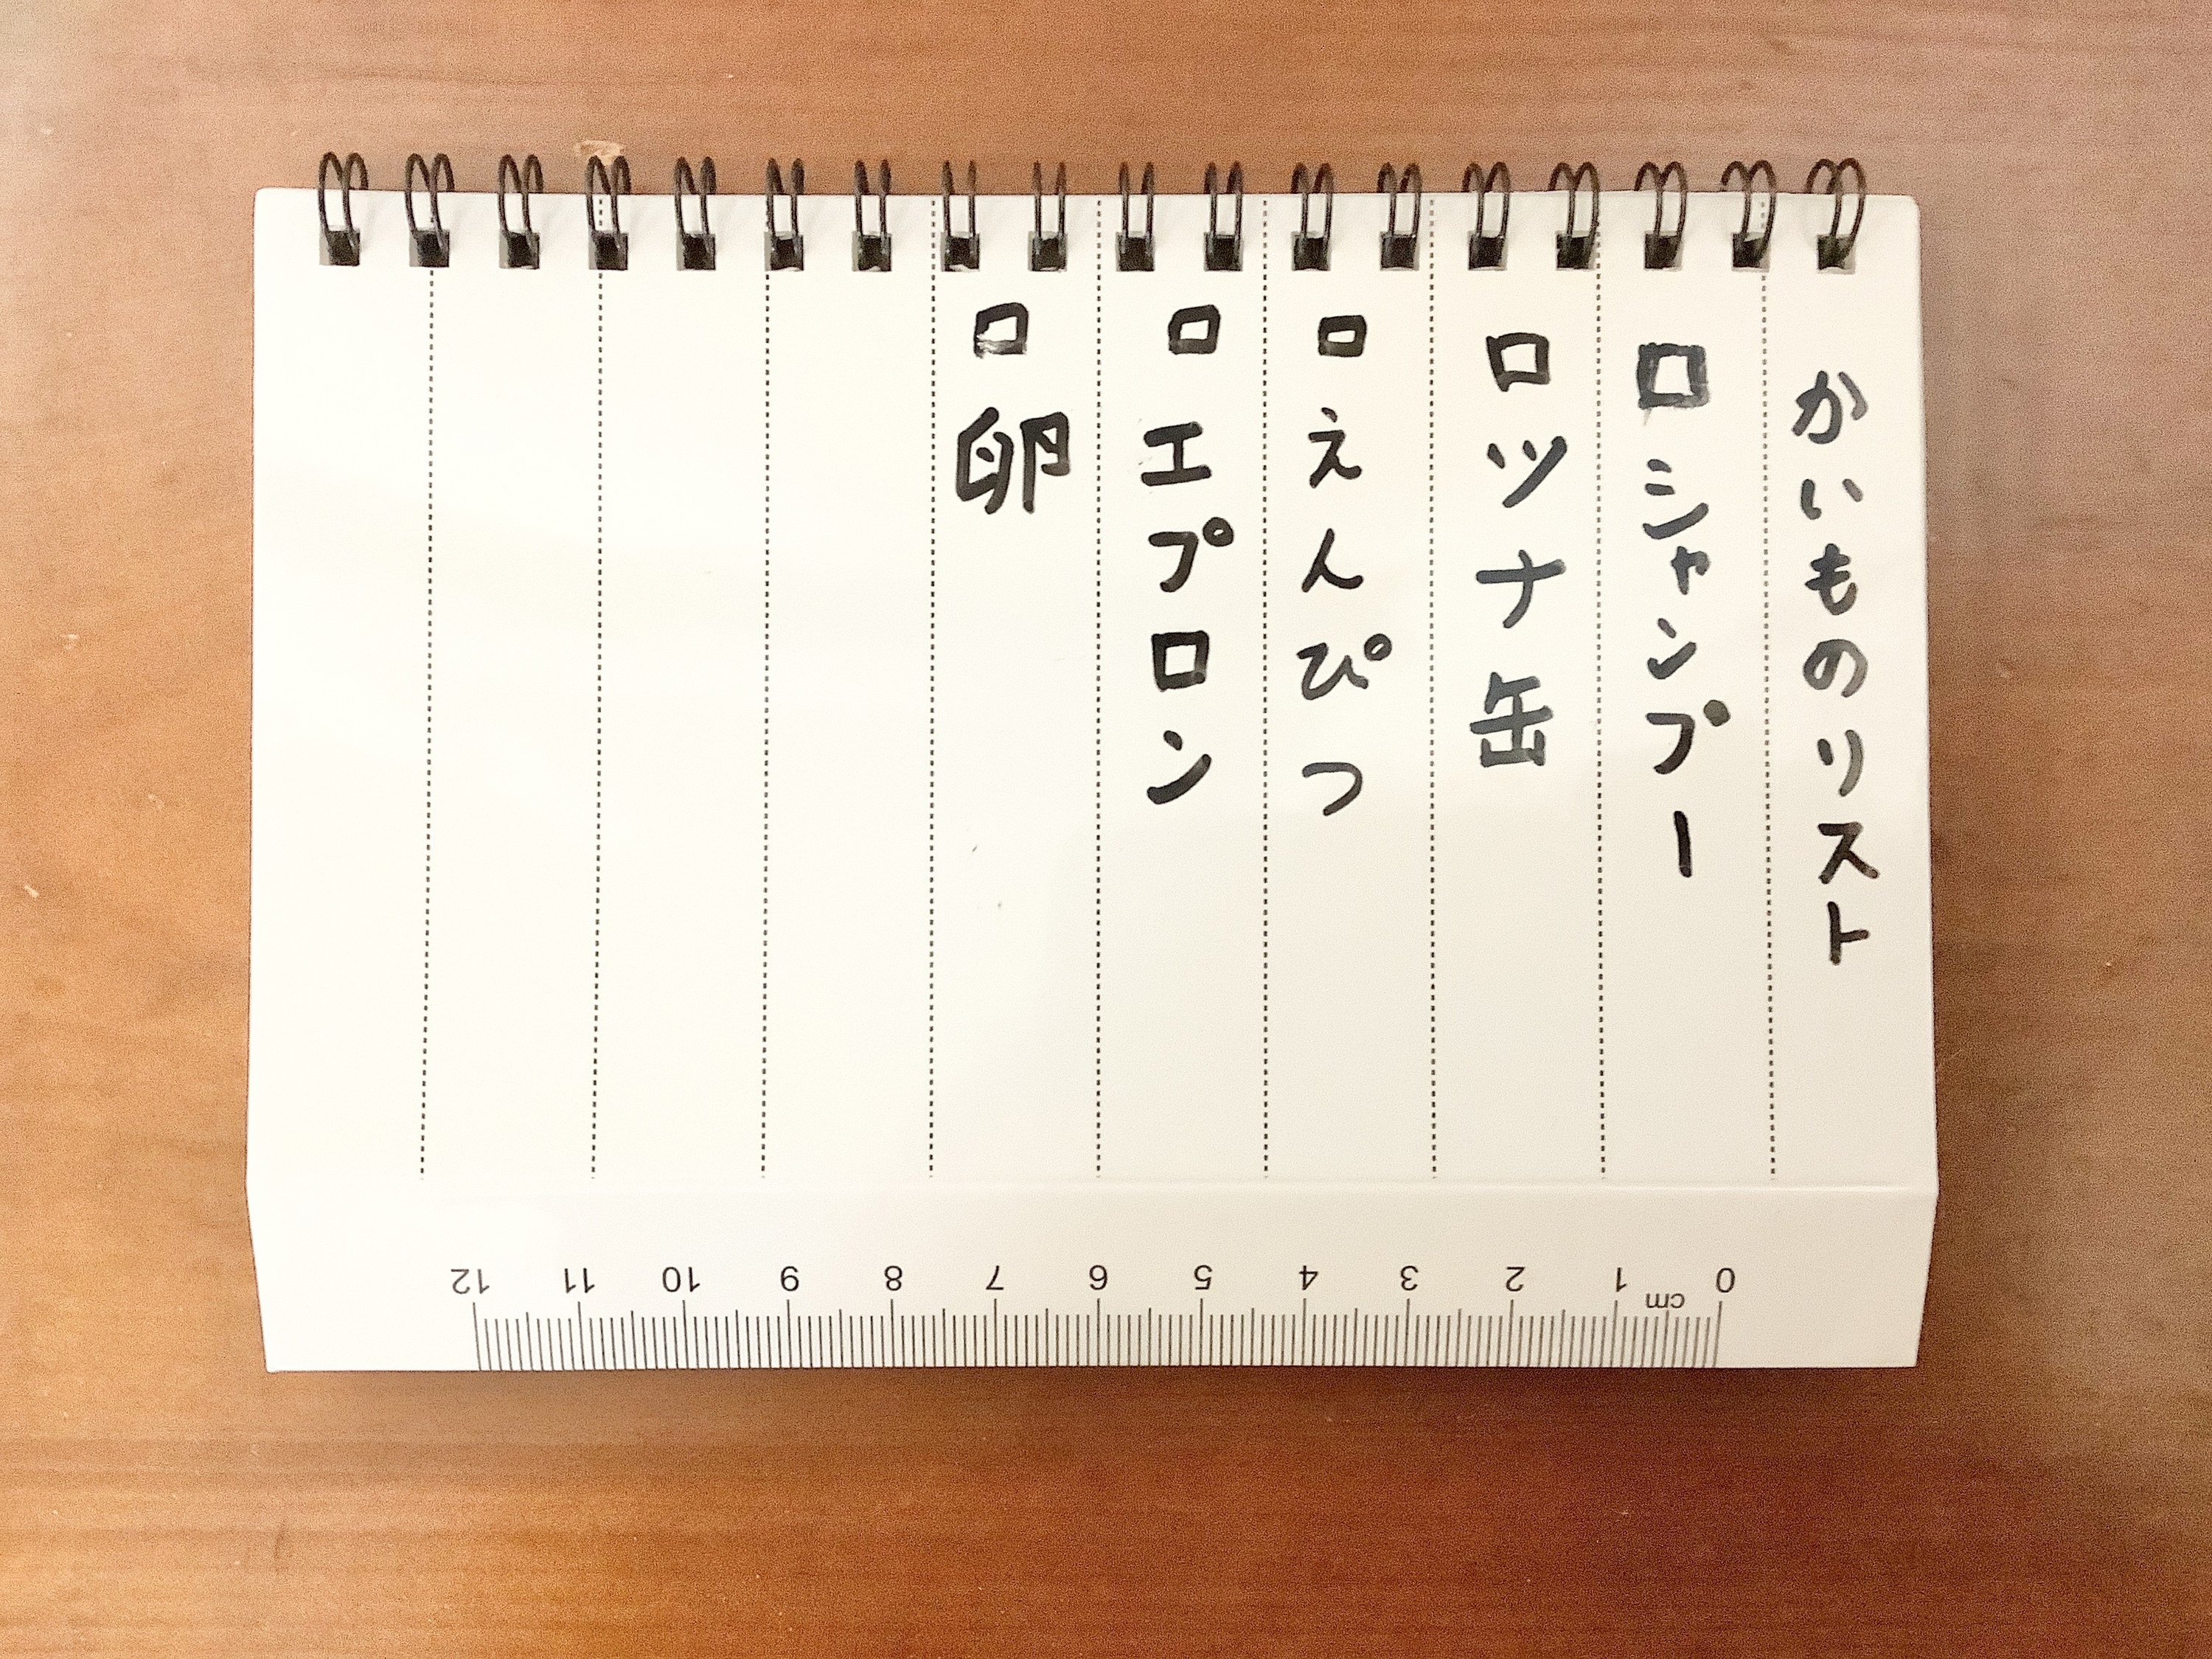 かいものリスト
□シャンプー
□ツナ缶
□えんぴつ
□エプロン
□卵
0 1 2 3 4 5 6 7 8 9 10 11 12
cm